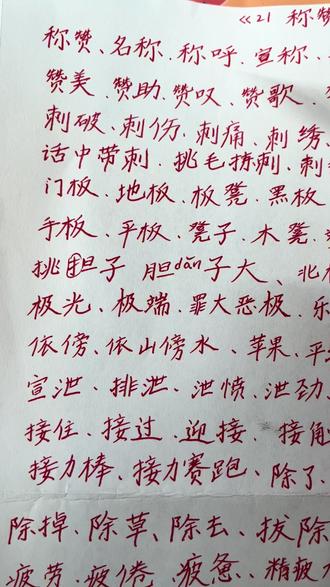 《21 称赞
称赞、名称、称呼、宣称、
赞美、赞助、赞叹、赞歌、
刺破、刺伤、刺痛、刺绣、
话中带刺、挑毛拣刺、刺
门板、地板、板凳、黑板
手板、平板、凳子、木凳、
挑担子 胆dǎn子大、北
极光、极端、罪大恶极、乐
依傍、依山傍水、苹果、平
宣泄、排泄、泄愤、泄劲、
接住、接过、迎接、接触
接力棒、接力赛跑、除了、
除掉、除草、除去、拔除
疲劳、疲倦、疲惫、精疲